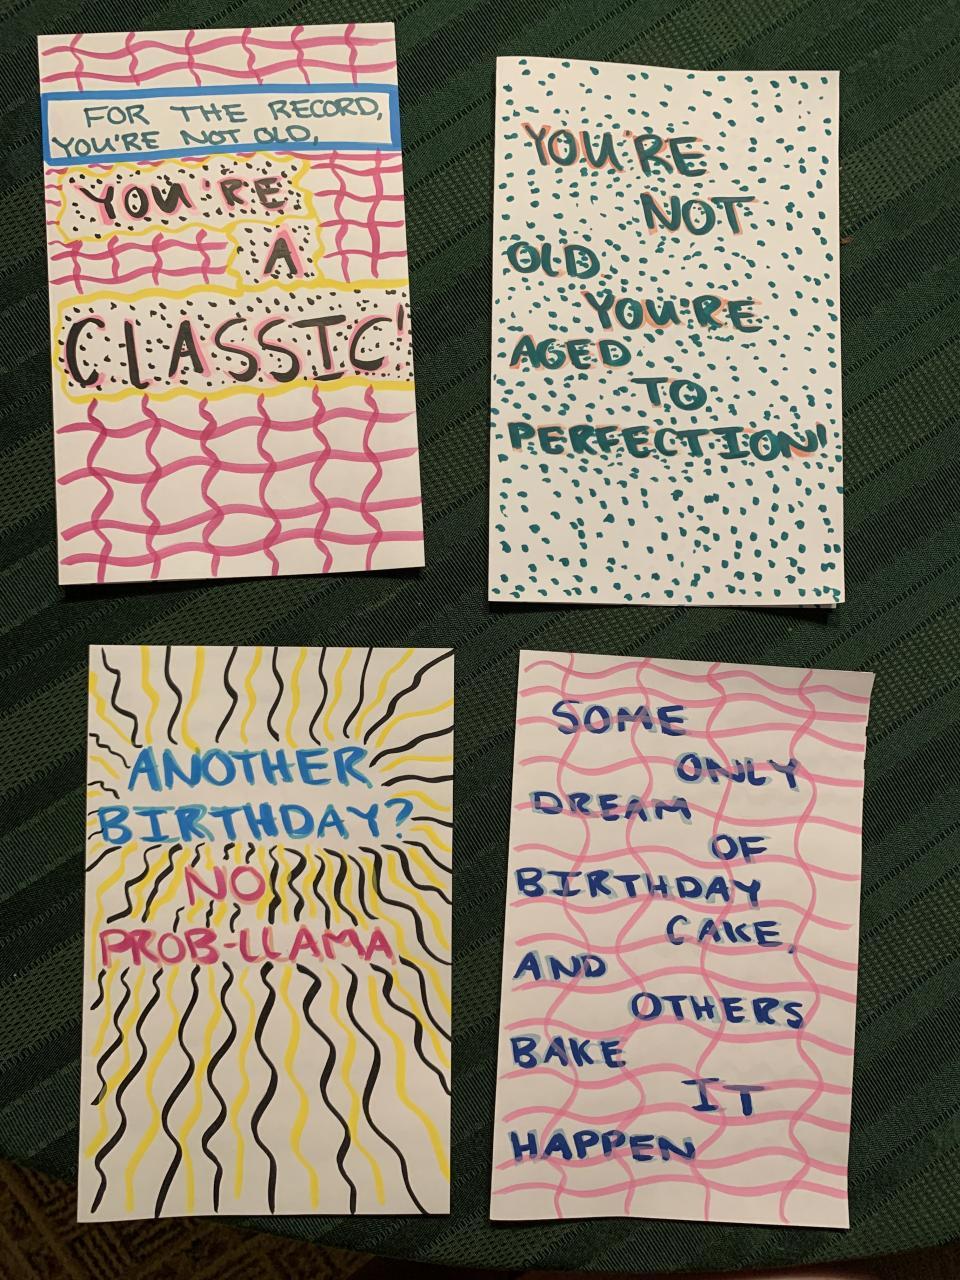 FOR THE RECORD,
YOU'RE NOT OLD,
YOU'RE
A
CLASSIC!
YOU'RE
NOT
OLD,
YOU'RE
AGED
TO
PERFECTION!
ANOTHER
BIRTHDAY?
NO
PROB-LLAMA
SOME
ONLY
DREAM
OF
BIRTHDAY
CAKE,
AND
OTHERS
BAKE
IT
HAPPEN